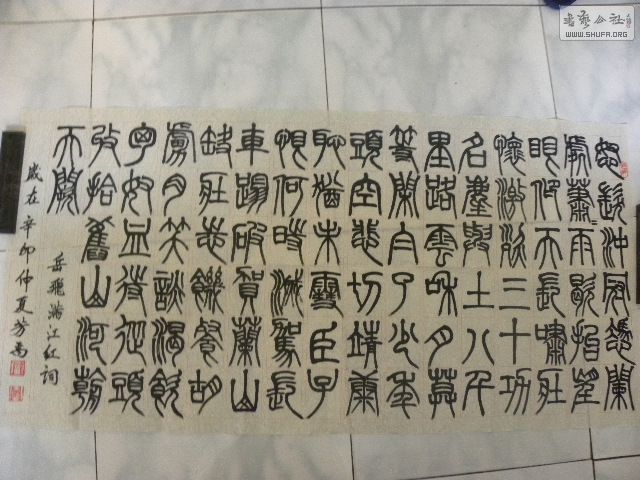 怒髮沖冠憑闌
處蕭〻雨歇抬望
眼仰天長嘯壯
懷激烈三十功
名塵與土八千
里路雲和月莫
等閑白了少年
頭空悲切靖康
恥猶未雪臣子
恨何時滅駕長
車踏破賀蘭山
缺壯志飢餐胡
虜肉笑談渴飲
匈奴血待從頭
收拾舊山河朝
天闕
岳飛滿江紅詞
歲在辛卯仲夏芳
書藝公社
WWW.SHUFA.ORG